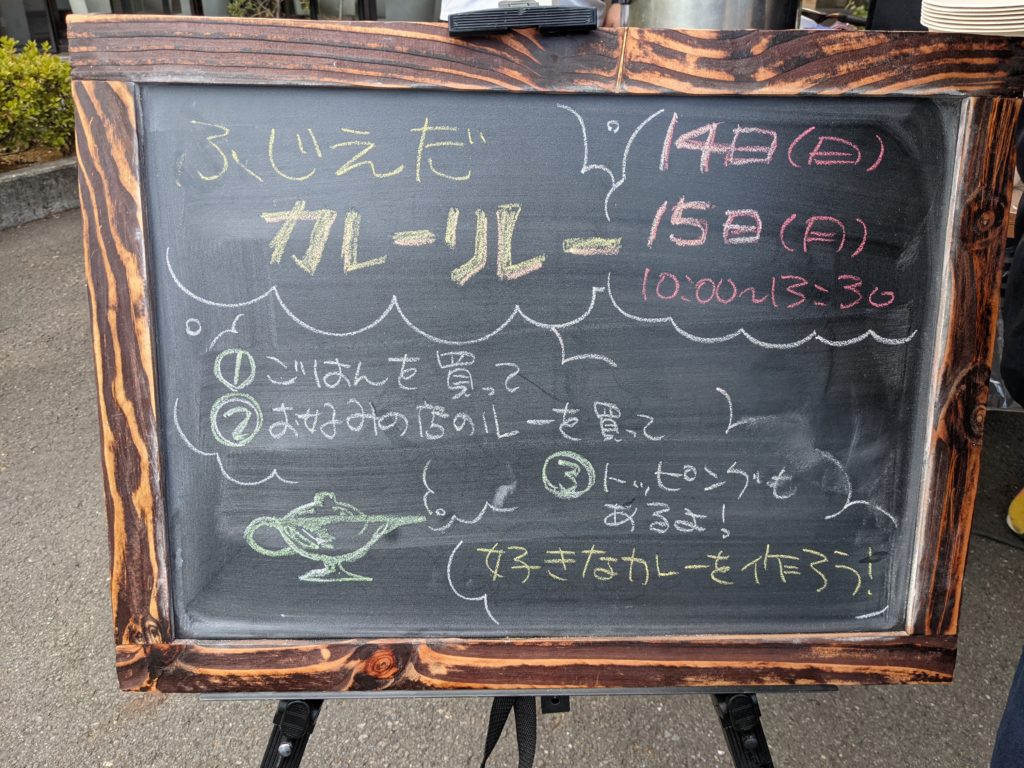 ふじえだ
カレーリレー
14日(日)
15日(月)
10:00〜13:30
①ごはんを買って
②お好みの店のルーを買って
③トッピングも
あるよ!
好きなカレーを作ろう!